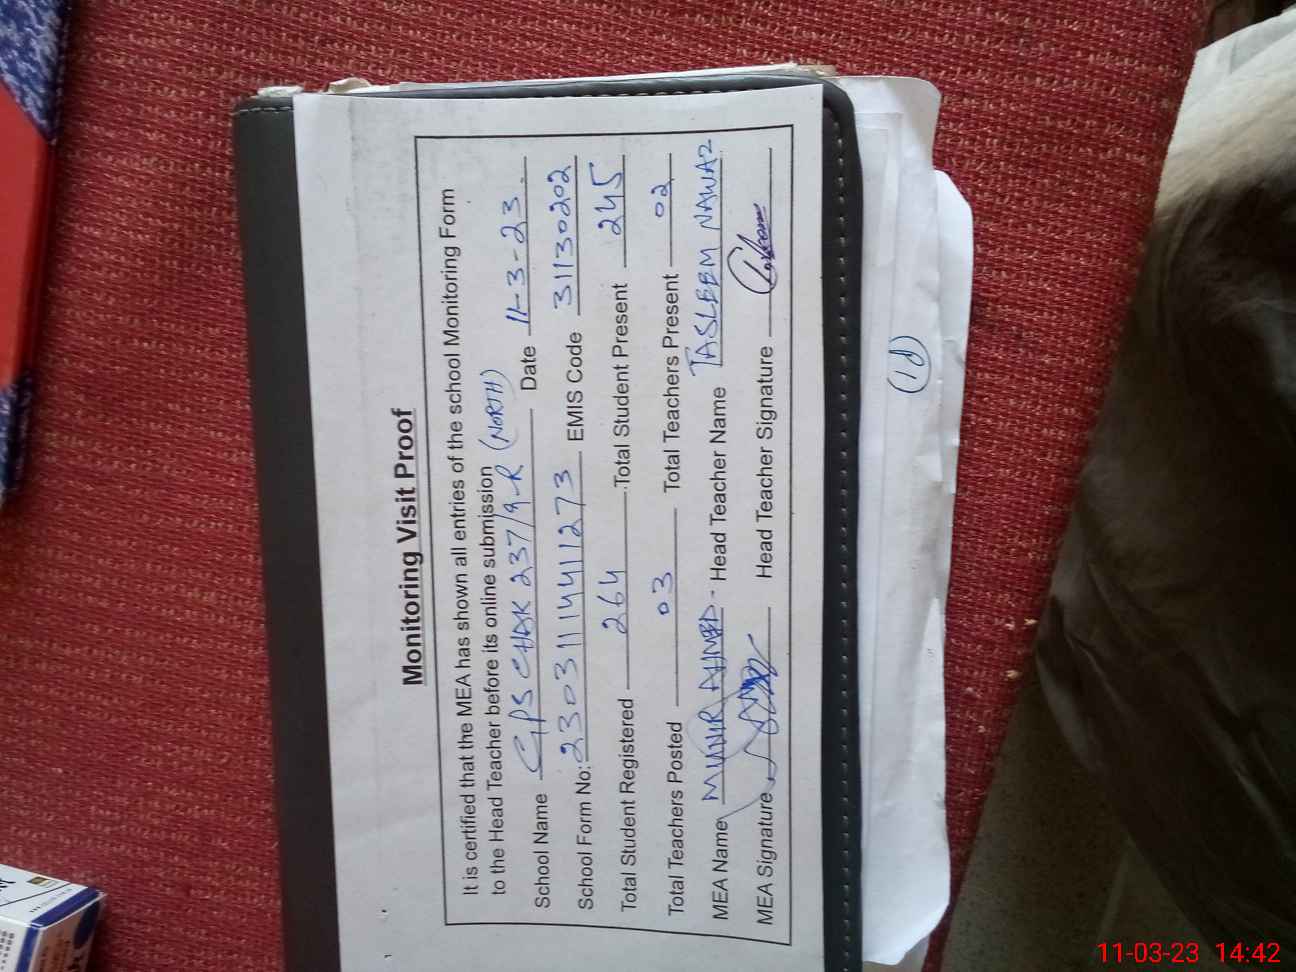 Monitoring Visit Proof
It is certified that the MEA has shown all entries of the school Monitoring Form
to the Head Teacher before its online submission
School Name GPS CHAK 237/9-R (NORTH) Date 11-3-23
School Form No: 23031114411273 EMIS Code 31130202
Total Student Registered 264 Total Student Present 245
Total Teachers Posted 03 Total Teachers Present 02
MEA Name MUNIR AHMED - Head Teacher Name TASLEEM NAWAZ
MEA Signature Head Teacher Signature
11-03-23 14:42